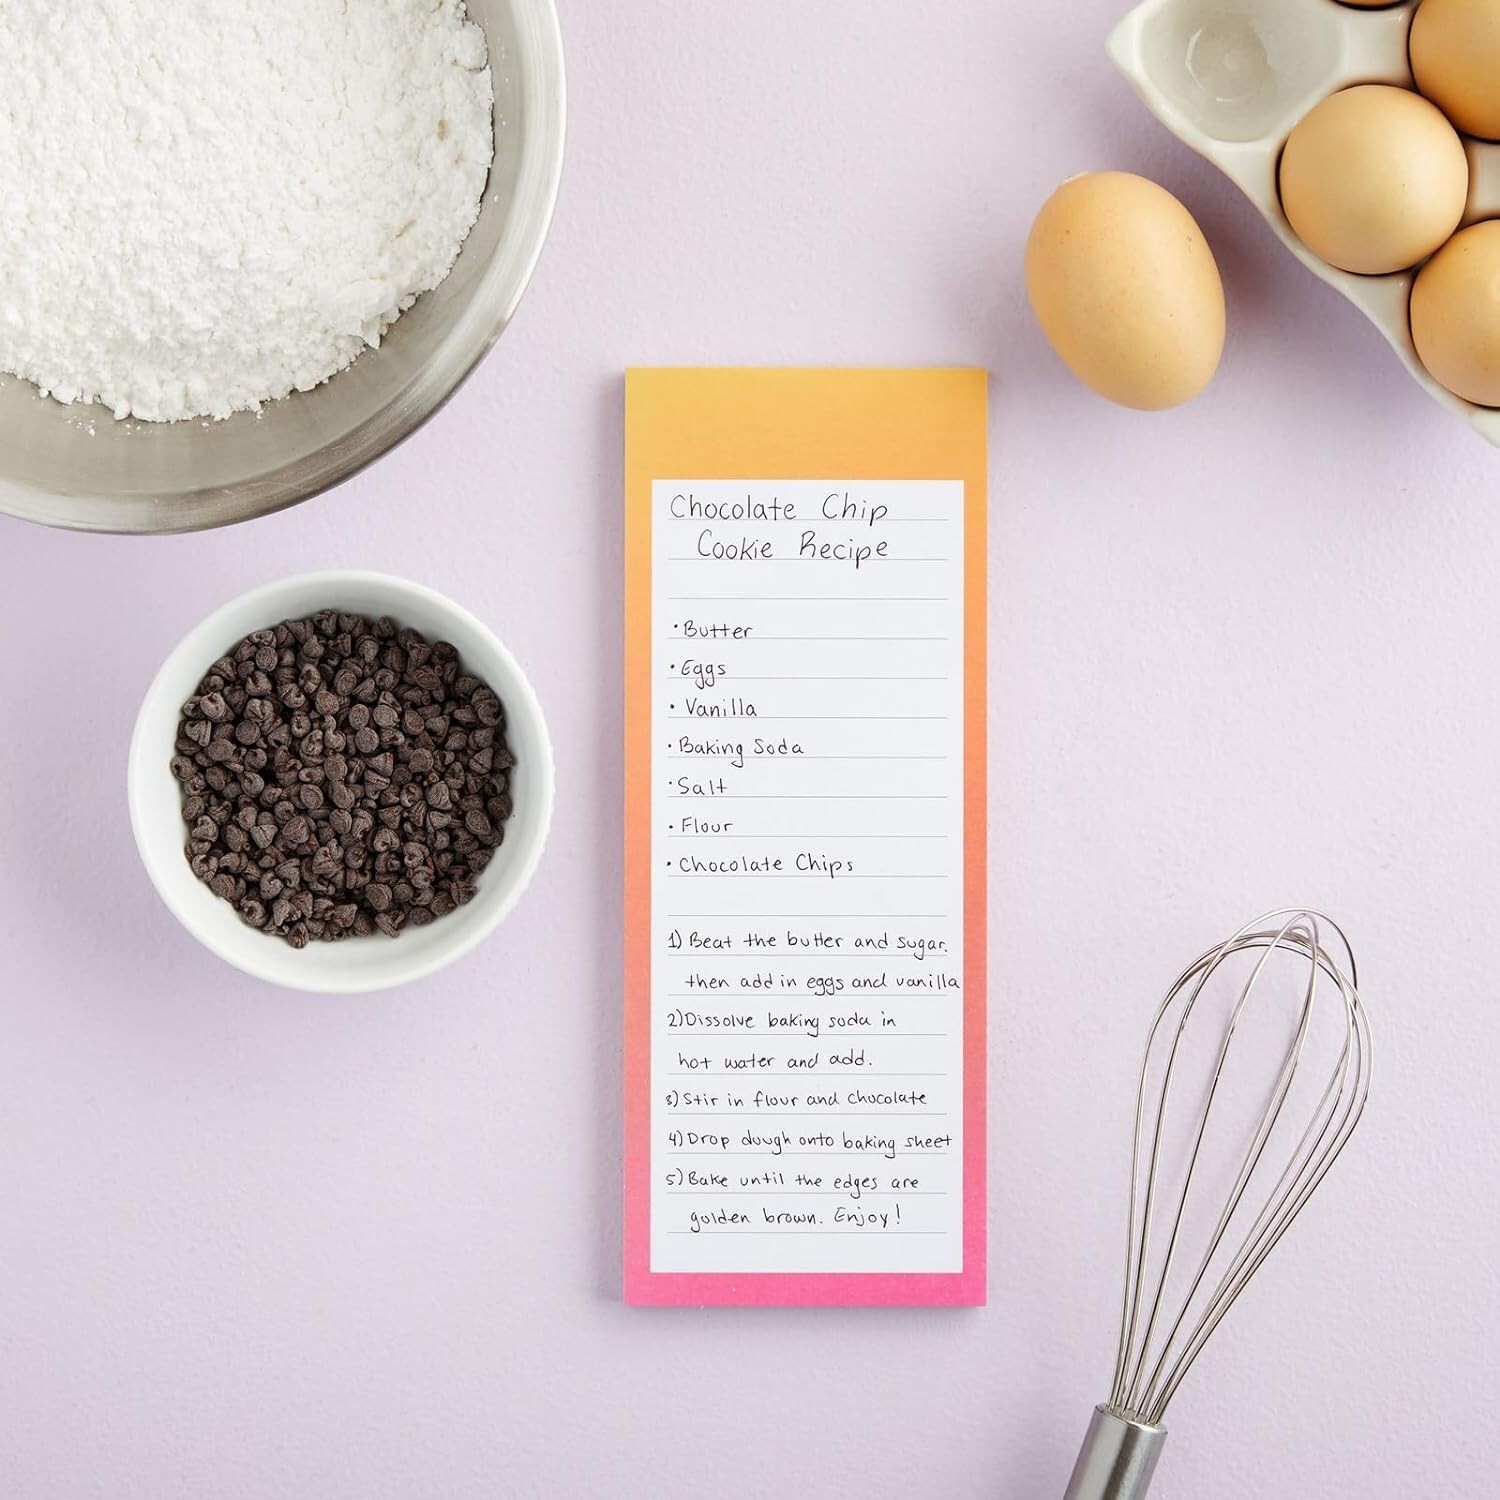 Chocolate Chip
Cookie Recipe
• Butter
• Eggs
• Vanilla
• Baking Soda
• Salt
• Flour
• Chocolate Chips
1) Beat the butter and sugar.
then add in eggs and vanilla
2) Dissolve baking soda in
hot water and add.
3) Stir in flour and chocolate
4) Drop dough onto baking sheet
5) Bake until the edges are
golden brown. Enjoy!